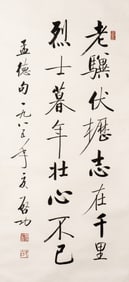 老骥伏櫪志在千里
烈士暮年壮心不已
孟德句一九八三年癸亥 启功